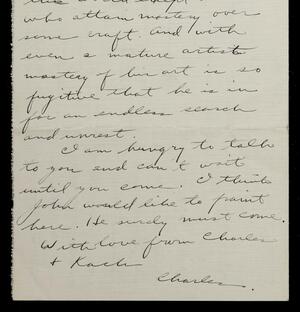 who attain mastery over
some craft. and with
even a mature artist
mastery of his art is so
fugitive that he is in
for an endless search
and unrest.
I am hungry to talk
to you and can't wait
until you come. I think
John would like to paint
here. He surely must come.
With love from Charles
+
Charles.